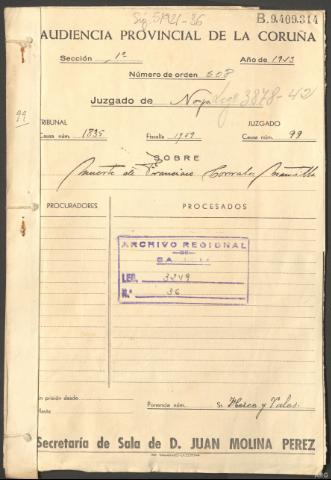 Sig. 5/921-36
B.9.409.314
AUDIENCIA PROVINCIAL DE LA CORUÑA
Sección 1ª Año de 1953
Número de orden 608
Juzgado de Noya Leg. 3878-42
TRIBUNAL JUZGADO
Causa núm. 1835 Fiscalía 1959 Causa núm. 99
99
SOBRE
muerte de Francisco
PROCURADORES PROCESADOS
ARCHIVO REGIONAL
DE
LEG. 3249
N.º 36
en prisión desde
Hasta
Ponencia núm. Sr.
Secretaría de Sala de D. JUAN MOLINA PEREZ